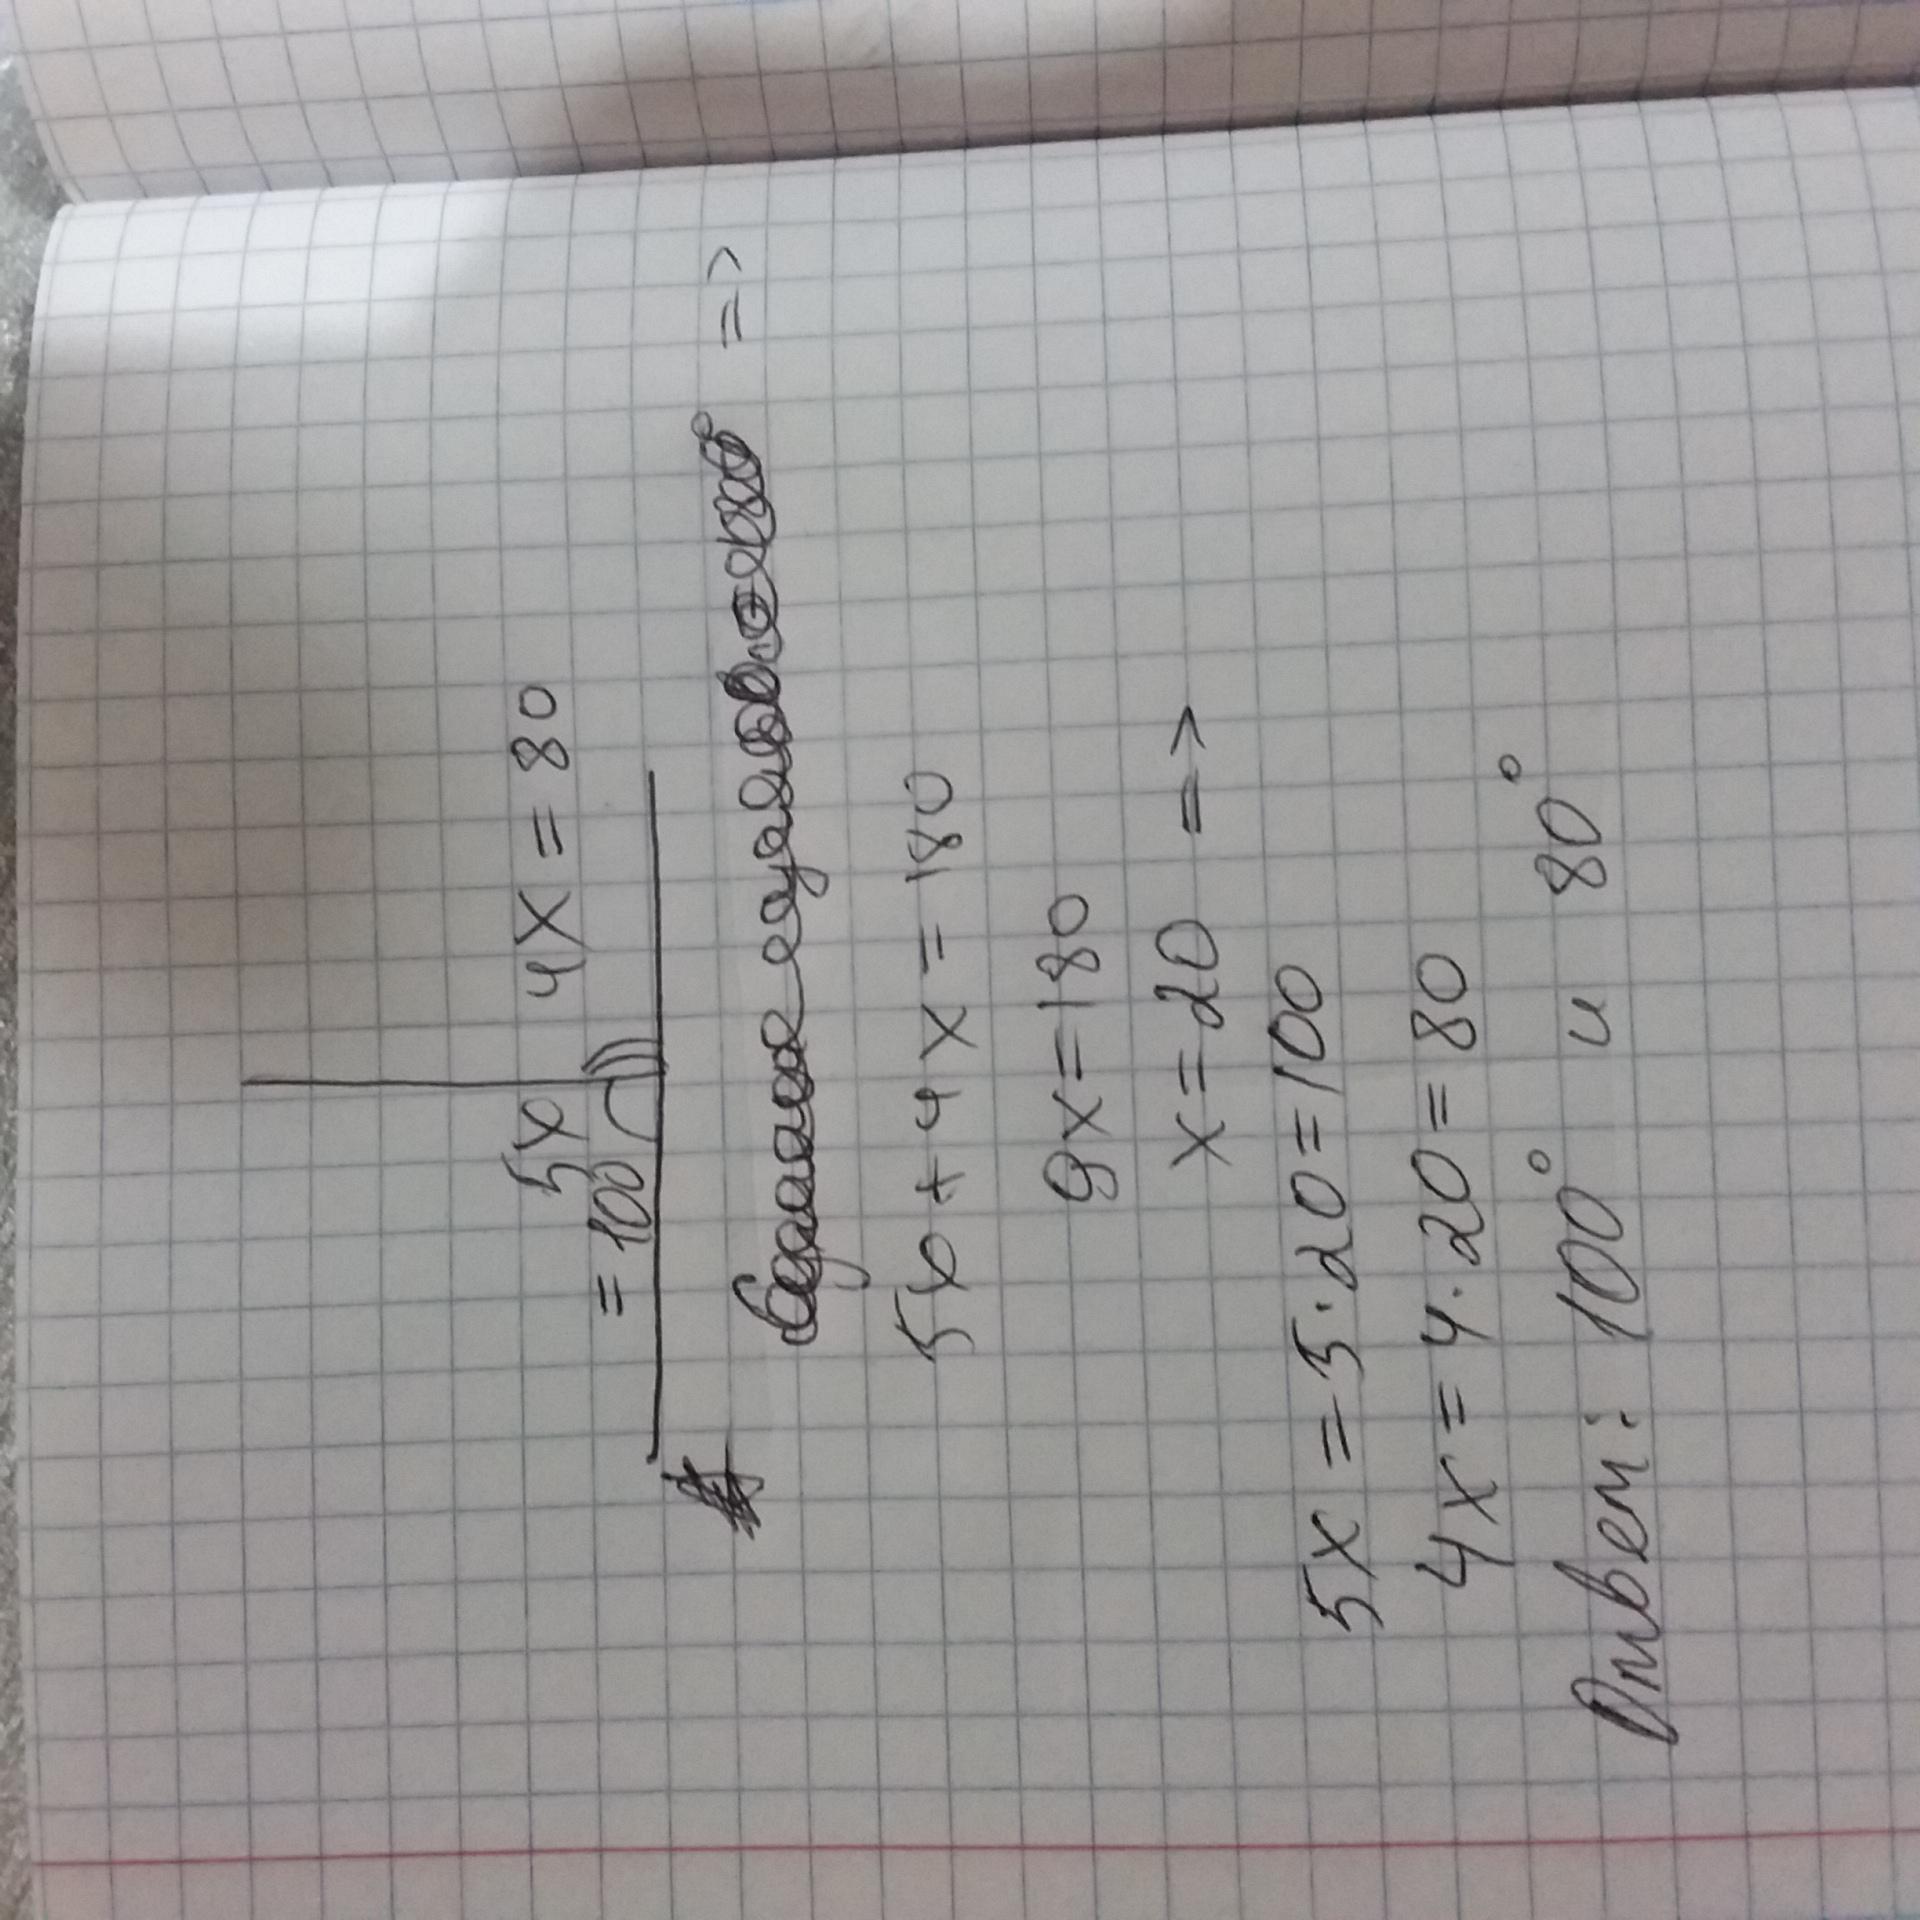 5x 4x = 80
= 100
=>
5x + 4x = 180
9x = 180
x = 20 =>
5x = 5 · 20 = 100
4x = 4 · 20 = 80
Ответ: 100° и 80°